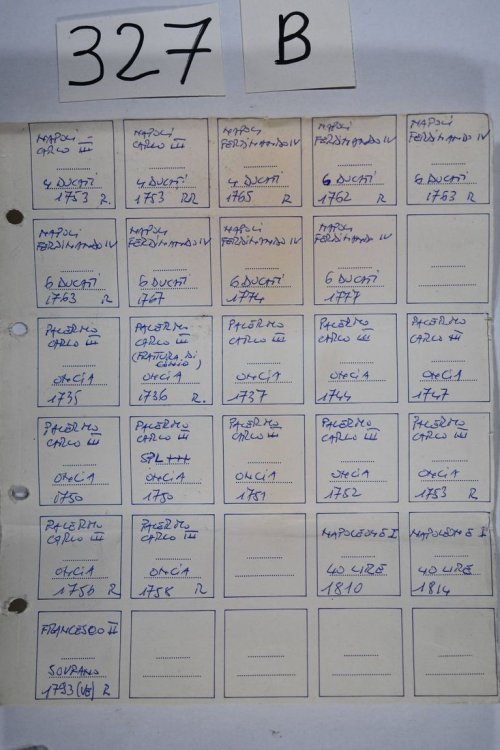 327 B
NAPOLI
CARLO III
4 DUCATI
1753 R.
NAPOLI
CARLO III
4 DUCATI
1753 RR
NAPOLI
FERDINANDO IV
4 DUCATI
1765 R
NAPOLI
FERDINANDO IV
6 DUCATI
1762 R
NAPOLI
FERDINANDO IV
6 DUCATI
1763 R
NAPOLI
FERDINANDO IV
6 DUCATI
1763 R
NAPOLI
FERDINANDO IV
6 DUCATI
1767
NAPOLI
FERDINANDO IV
6 DUCATI
1774
NAPOLI
FERDINANDO IV
6 DUCATI
1777
PALERMO
CARLO III
ONCIA
1735
PALERMO
CARLO III
(FRATTURA DI
CONIO)
ONCIA
1736 R.
PALERMO
CARLO III
ONCIA
1737
PALERMO
CARLO III
ONCIA
1744
PALERMO
CARLO III
ONCIA
1747
PALERMO
CARLO III
ONCIA
1750
PALERMO
CARLO III
SPL +++
ONCIA
1750
PALERMO
CARLO III
ONCIA
1751
PALERMO
CARLO III
ONCIA
1752
PALERMO
CARLO III
ONCIA
1753 R
PALERMO
CARLO III
ONCIA
1756 R
PALERMO
CARLO III
ONCIA
1758 R.
NAPOLEONE I
40 LIRE
1810
NAPOLEONE I
40 LIRE
1814
FRANCESCO II
SOVRANO
1793 (VE) R